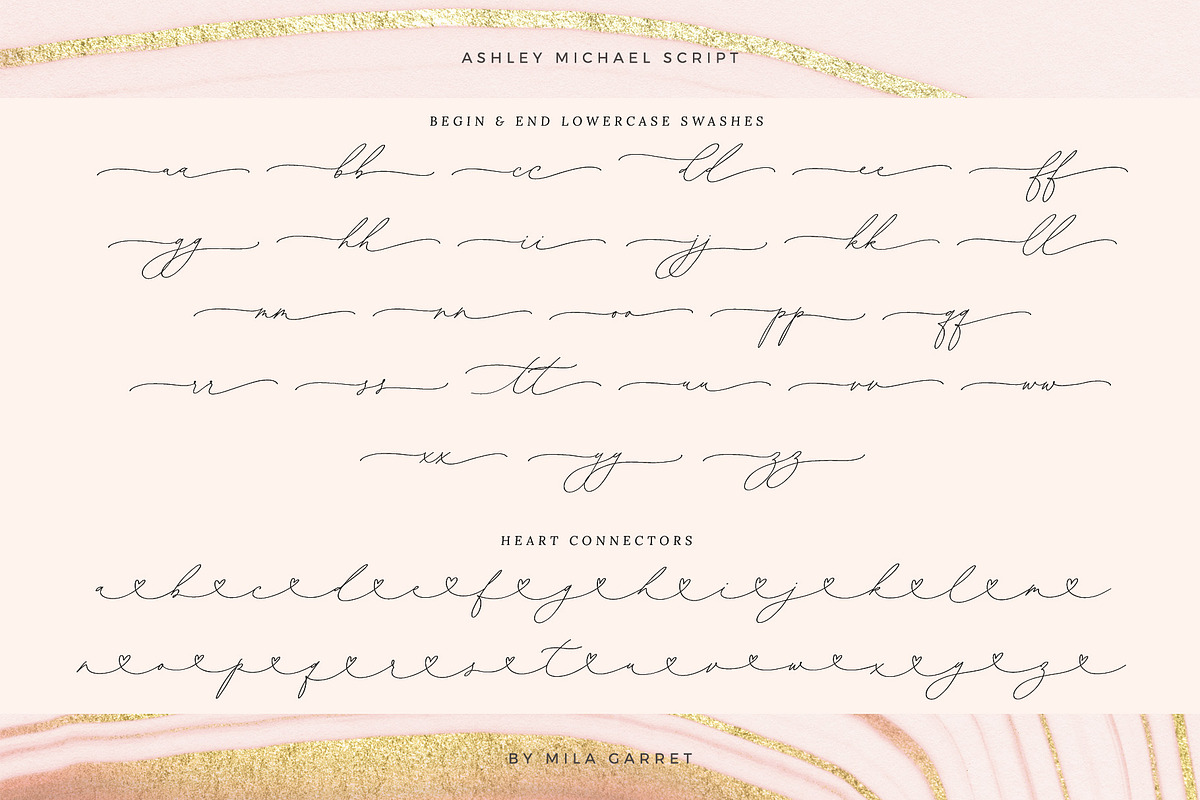 ASHLEY MICHAEL SCRIPT
BEGIN & END LOWERCASE SWASHES
aa bb cc dd ee ff
gg hh ii jj kk ll
mm nn oo pp qq
rr ss tt uu vv ww
xx yy zz
HEART CONNECTORS
a b c d e f g h i j k l m
n o p q r s t u v w x y z
BY MILA GARRET